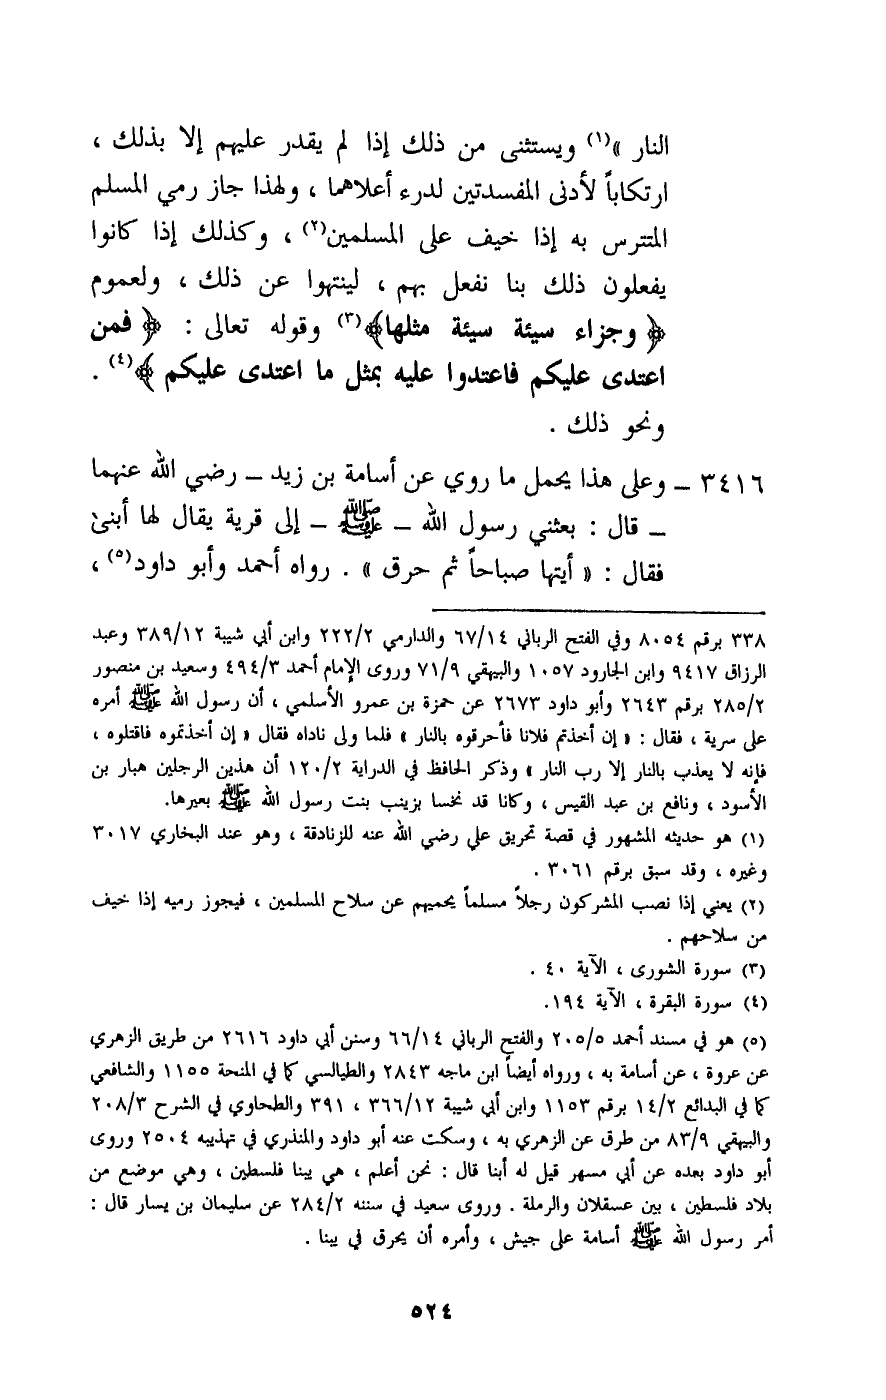 النار »(١) ويستثنى من ذلك إذا لم يقدر عليهم إلا بذلك ،
ارتكاباً لأدنى المفسدتين لدرء أعلاهما ، ولهذا جاز رمي المسلم
المتترس به إذا خيف على المسلمين(٢) ، وكذلك إذا كانوا
يفعلون ذلك بنا نفعل بهم ، لينتهوا عن ذلك ، ولعموم
﴿ وجزاء سيئة سيئة مثلها﴾(٣) وقوله تعالى : ﴿ فمن
اعتدى عليكم فاعتدوا عليه بمثل ما اعتدى عليكم ﴾(٤) .
ونحو ذلك .
٣٤١٦ – وعلى هذا يحمل ما روي عن أسامة بن زيد – رضي الله عنهما
– قال : بعثني رسول الله – ﷺ – إلى قرية يقال لها أبنىٰ
فقال : « أيتها صباحاً ثم حرق » . رواه أحمد وأبو داود(٥) ،
٣٣٨ برقم ٨٠٥٤ وفي الفتح الرباني ٦٧/١٤ والدارمي ٢٢٢/٢ وابن أبي شيبة ٣٨٩/١٢ وعبد
الرزاق ٩٤١٧ وابن الجارود ١٠٥٧ والبيهقي ٧١/٩ وروى الإمام أحمد ٤٩٤/٣ وسعيد بن منصور
٢٨٥/٢ برقم ٢٦٤٣ وأبو داود ٢٦٧٣ عن حمزة بن عمرو الأسلمي ، أن رسول الله ﷺ أمره
على سرية ، فقال : « إن أخذتم فلانا فأحرقوه بالنار » فلما ولى ناداه فقال « إن أخذتموه فاقتلوه ،
فإنه لا يعذب بالنار إلا رب النار » وذكر الحافظ في الدراية ١٢٠/٢ أن هذين الرجلين هبار بن
الأسود ، ونافع بن عبد القيس ، وكانا قد نخسا بزينب بنت رسول الله ﷺ بعيرها.
(١) هو حديثه المشهور في قصة تحريق علي رضي الله عنه للزنادقة ، وهو عند البخاري ٣٠١٧
وغيره ، وقد سبق برقم ٣٠٦١ .
(٢) يعني إذا نصب المشركون رجلاً مسلماً يحميهم عن سلاح المسلمين ، فيجوز رميه إذا خيف
من سلاحهم .
(٣) سورة الشورى ، الآية ٤٠ .
(٤) سورة البقرة ، الآية ١٩٤.
(٥) هو في مسند أحمد ٢٠٥/٥ والفتح الرباني ٦٦/١٤ وسنن أبي داود ٢٦١٦ من طريق الزهري
عن عروة ، عن أسامة به ، ورواه أيضاً ابن ماجه ٢٨٤٣ والطيالسي كما في المنحة ١١٥٥ والشافعي
كما في البدائع ١٤/٢ برقم ١١٥٣ وابن أبي شيبة ٣٦٦/١٢ ، ٣٩١ والطحاوي في الشرح ٢٠٨/٣
والبيهقي ٨٣/٩ من طرق عن الزهري به ، وسكت عنه أبو داود والمنذري في تهذيبه ٢٥٠٤ وروى
أبو داود بعده عن أبي مسهر قيل له أبنا قال : نحن أعلم ، هي يبنا فلسطين ، وهي موضع من
بلاد فلسطين ، بين عسقلان والرملة . وروى سعيد في سننه ٢٨٤/٢ عن سليمان بن يسار قال :
أمر رسول الله ﷺ أسامة على جيش ، وأمره أن يحرق في يبنا .
٥٢٤